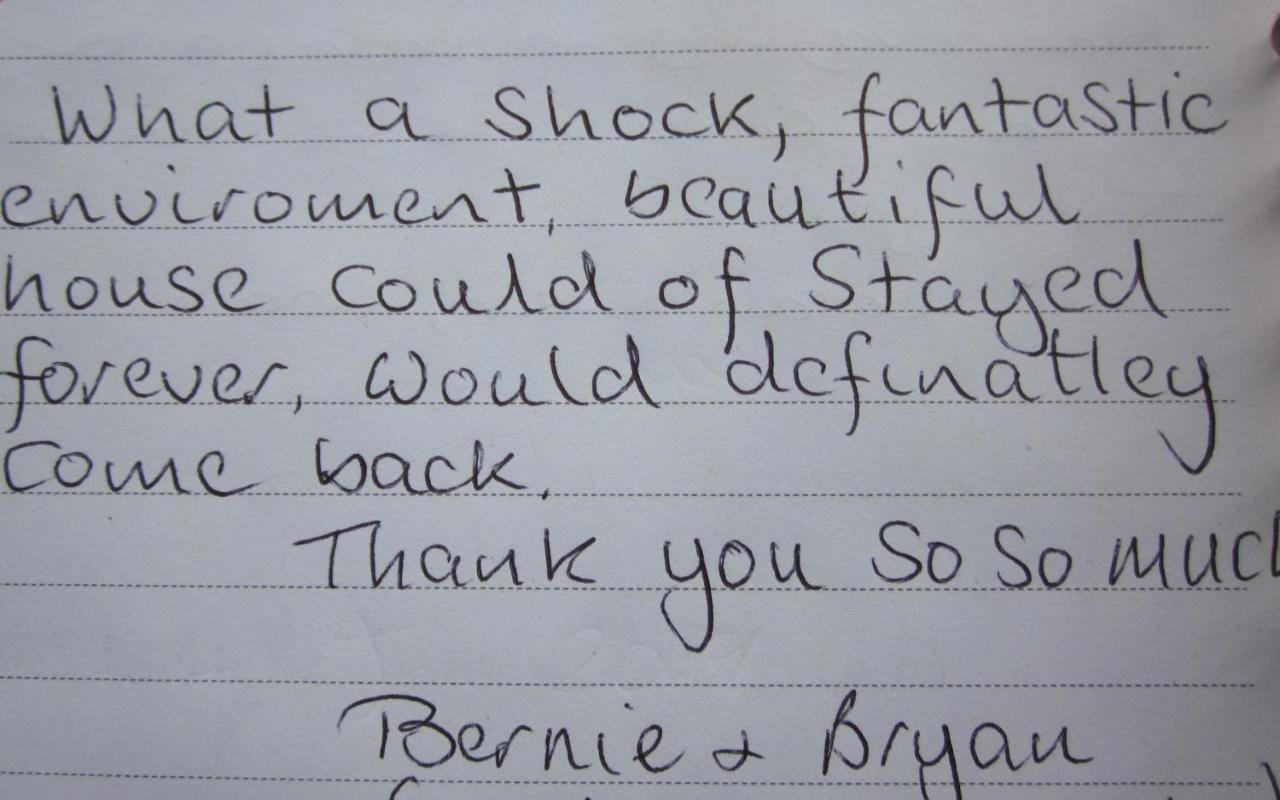 What a shock, fantastic
enviroment, beautiful
house could of stayed
forever, would definatley
come back.
Thank you so so muc
Bernie & Bryan